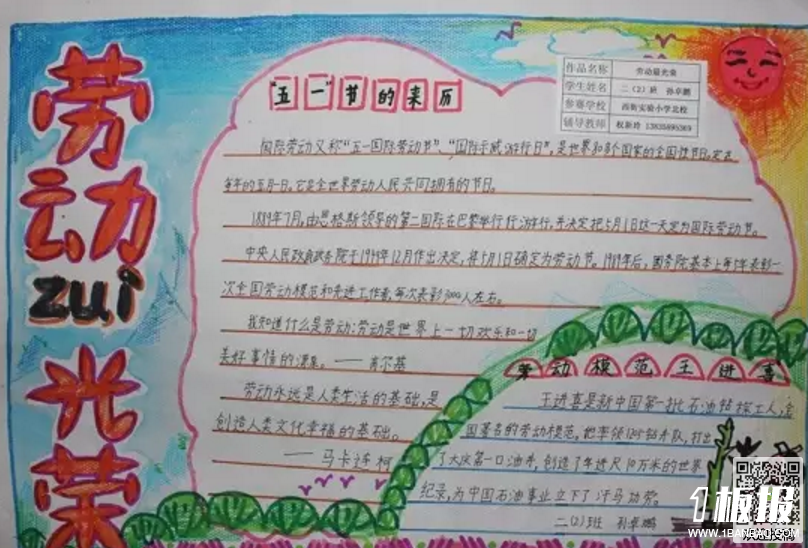 劳动
zui
光荣
作品名称 劳动最光荣
学生姓名 二(2)班 孙卓鹏
参赛学校 西街实验小学北校
辅导教师 权新玲 13835695369
"五一"节的来历
国际劳动又称"五一国际劳动节"、"国际示威游行日",是世界和多个国家的全国性节日。定在
每年的五月一日。它是全世界劳动人民共同拥有的节日。
1889年7月,由恩格斯领导的第二国际在巴黎举行行游行,并决定把5月1日这一天定为国际劳动节。
中央人民政府政务院于1949年12月作出决定,将5月1日确定为劳动节。1989年后,国务院基本上每5年表彰一
次全国劳动模范和先进工作者,每次表彰3000人左右。
我知道什么是劳动:劳动是世界上一切欢乐和一切
美好事情的源泉。——高尔基
劳动永远是人类生活的基础,是
创造人类文化幸福的基础。
——马卡连柯
劳动模范王进喜
王进喜是新中国第一批石油钻探工人,全
国著名的劳动模范,他率领1205钻井队,打出
了大庆第一口油井,创造了年进尺10万米的世界
纪录,为中国石油事业立下了汗马功劳。
二(2)班 孙卓鹏
1板报
WWW.1BANBAO.COM